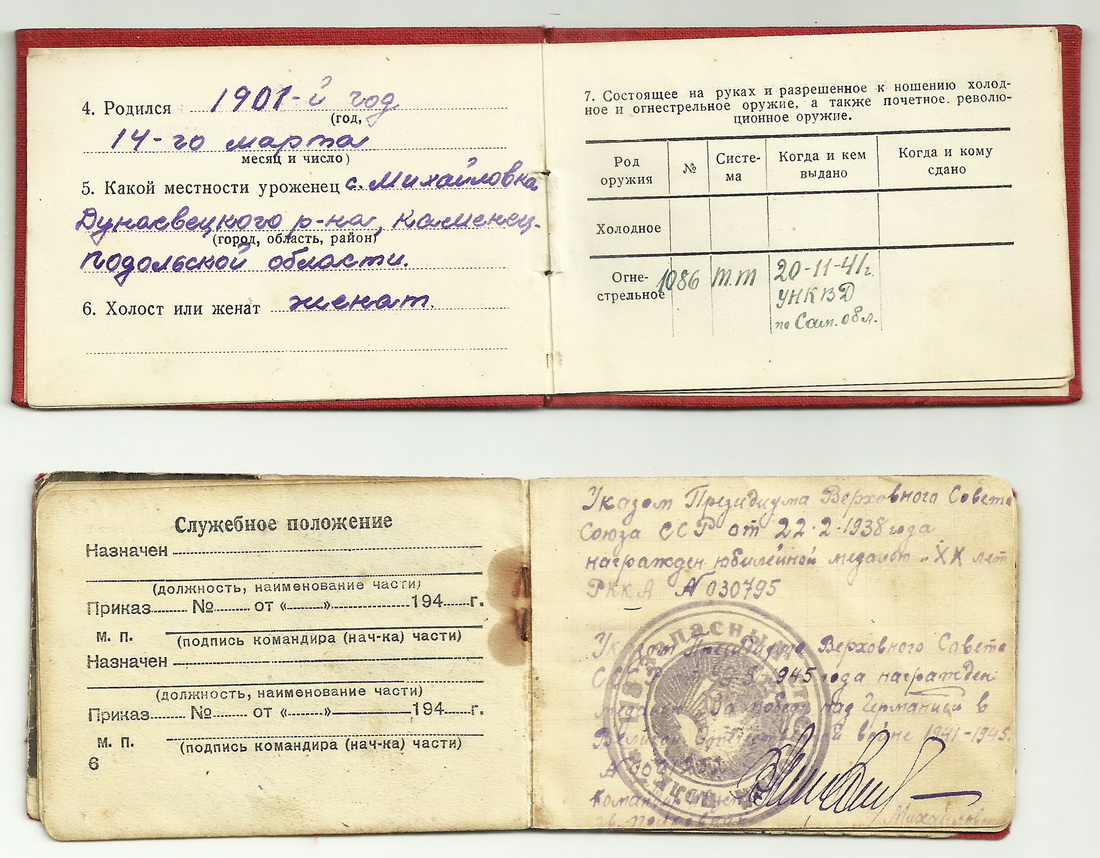 4. Родился 1901-й год
(год,
14-го марта
месяц и число)
5. Какой местности уроженец с. Михайловка
Дунаевецкого р-на, Каменец-
(город, область, район)
Подольской области.
6. Холост или женат женат.
7. Состоящее на руках и разрешенное к ношению холод-
ное и огнестрельное оружие, а также почетное революционное оружие.
Род оружия № Систе-ма Когда и кем выдано Когда и кому сдано
Холодное
Огне-стрельное 1086 Т.Т 20-11-41г.
УНКВД
по Сам. обл.
Служебное положение
Назначен
(должность, наименование части)
Приказ № от « » 194 г.
М. П. (подпись командира (нач-ка) части)
Назначен
(должность, наименование части)
Приказ № от « » 194 г.
М. П. (подпись командира (нач-ка) части)
6
Указом Президиума Верховного Совета
Союза ССР от 22·2·1938 года
награжден юбилейной медалью „XX лет
РККА № 030795
Президиума Верховного Совета
1945 года награжден
над Германией в
войне 1941-1945.